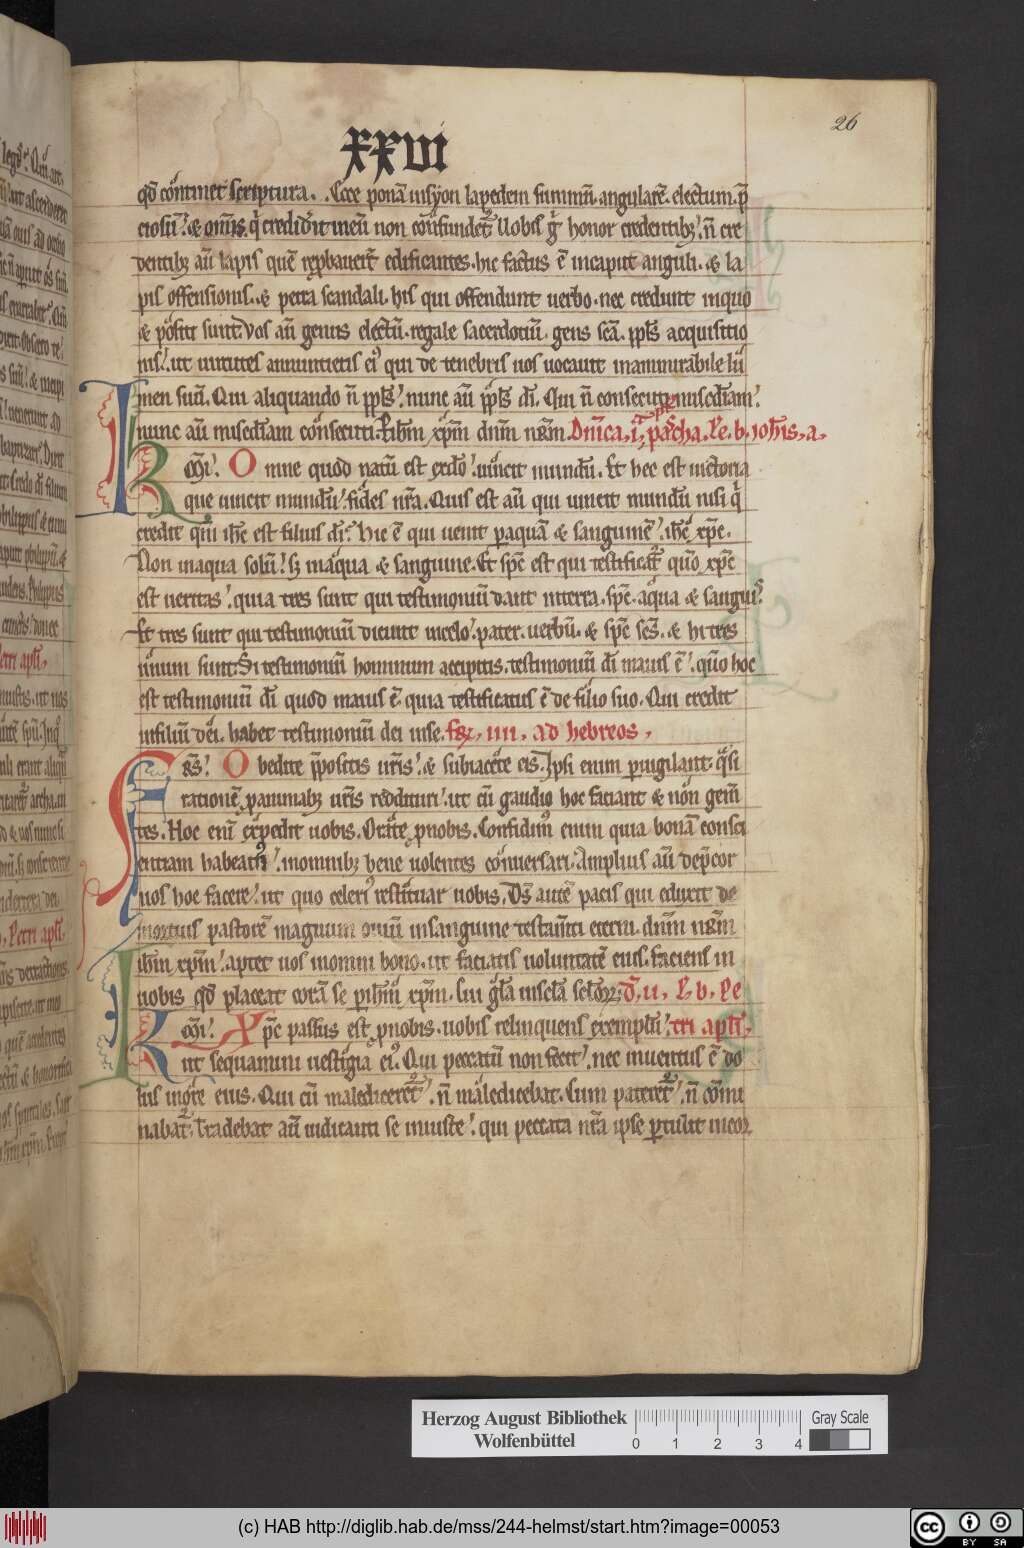 xxvi
26
qd̄ cōtinet scriptura. Ecce ponā insyon lapedem summū angularē. electum. p̄
ciosū. & om̄is q̇ credid'it ineū non cōfundet᷑. Uobis g̊ honor credentibꝫ. n̄ cre
dentibꝫ aū lapis quē rep̄baueꝝt edificantes. hic factus ē incaput anguli. & la
pis offensionis. & petra scandali. his qui offendunt uerbo. nec credunt inquo
& positi sunt. Vos aū genus electū. regale sacerdotiū. gens sc̄a. ppl̄s acquisitio
nis. ut uirtutes annuntietis ei' qui de tenebris uos uocauit inammirabile lu
men suū. Qui aliquando n̄ ppl̄s. nunc aū ppl̄s dī. Qui n̄ consecuti misc̄diam.
nunc aū misc̄diam cōsecuti. P ih̄m xp̄m dn̄m nr̄m. Dn̄ica. i. p' pascha. Le. b. ioh̄is. a.
Kmī. Omne quod natū est ex dō. uincit mundū. Et hec est uictoria
que uincit mundū. fides nr̄a. Quis est aū qui uincit mundū nisi q̇
credit qm̄ ih̄c est filius dī. Hic ē qui uenit p aquā & sanguinē. ih̄c xp̄c.
Non inaqua solū. sꝫ inaqua & sanguine. Et sp̄c est qui testificat᷑ qm̄ xp̄c
est ueritas. quia tres sunt qui testimoniū dant interra. sp̄c. aqua & sanguis.
Et tres sunt qui testimoniū dicunt incelo. pater. uerbū. & sp̄c sc̄s. & hi tres
unum sunt. Si testimoniū hominum accipitis. testimoniū dī maius ē. qm̄ hoc
est testimoniū dī quod maius ē. quia testificatus ē de filio suo. Qui credit
infiliū dei. habet testimoniū dei inse. fer. iiii. ad hebreos.
Fr̄s. Obedite p̄positis ur̄is. & subiacete eis. Ipsi enim puigilant q̇si
rationē p animabꝫ ur̄is reddituri. ut cū gaudio hoc faciant & non gem̄
tes. Hoc enī expedit uobis. Orate pnobis. Confidim' enim quia bonā consci
entiam habeam'. inomnibꝫ bene uolentes conuersari. Amplius aū dep̄cor
uos hoc facere. ut quo celeri' restituar uobis. Ds̄ autē pacis qui eduxit de
mortuis pastorē magnum ouiū insanguine testam̄ti eterni. dn̄m nr̄m
ih̄m xp̄m. aptet uos inomni bono. ut faciatis uoluntatē eius. faciens in
uobis qd̄ placeat corā se p ih̄m xp̄m. cui gl̄a insecl̄a secl̄oꝝ. D. ii. L. b. Pe
Kmī. Xp̄c passus est pnobis. uobis relinquens exemplū. tri apl̄i.
ut sequamini uestigia ei'. Qui peccatū non fecit. nec inuentus ē do
lus inore eius. Qui cū malediceret᷑. n̄ maledicebat. Cum pateret᷑. n̄ cōmi
nabat᷑. Tradebat aū iudicanti se iniuste. qui peccata nr̄a ipse ptulit incor
Herzog August Bibliothek
Wolfenbüttel
0 1 2 3 4
Gray Scale
(c) HAB http://diglib.hab.de/mss/244-helmst/start.htm?image=00053
cc BY SA